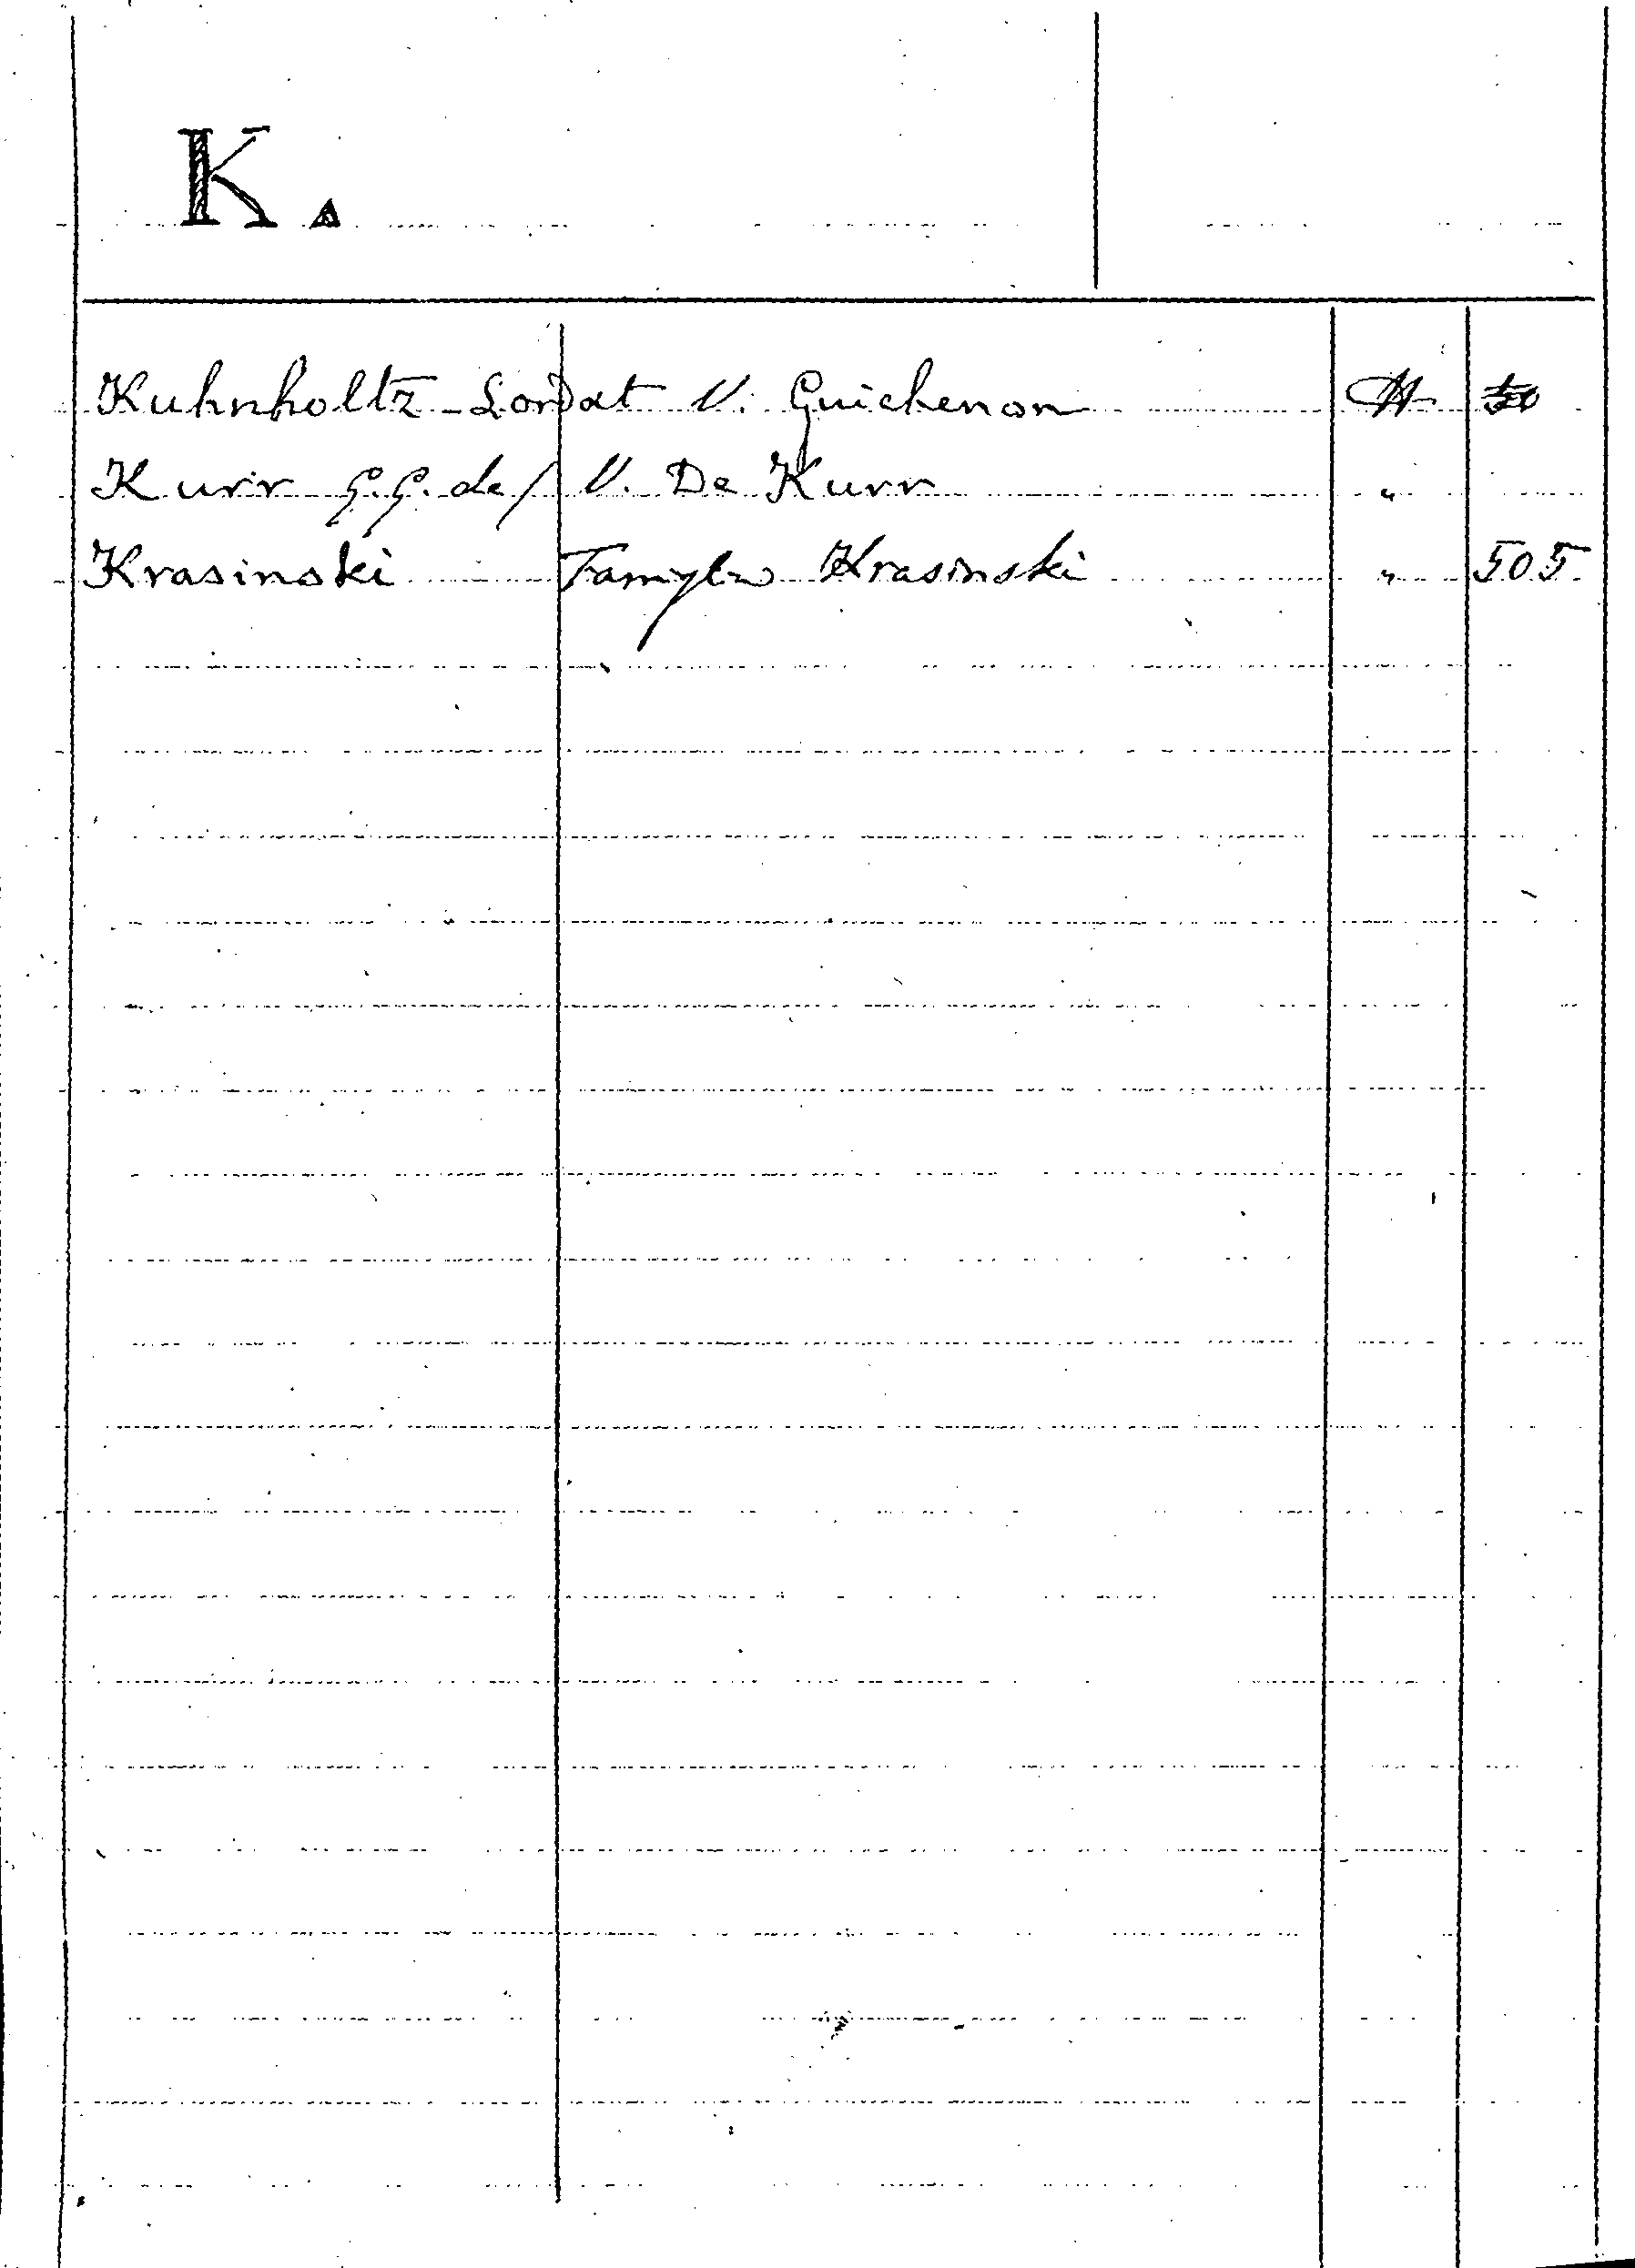 K.
Kuhnholtz-Lordat V. Guichenon
Kurr G.G. de/ V. De Kurr "
Krasinski Krasinski " 505